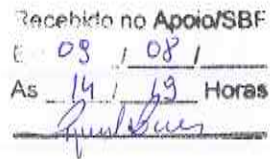 Recebido no Apoio/SBF
E 09 / 08 /
As 14 / 19 Horas